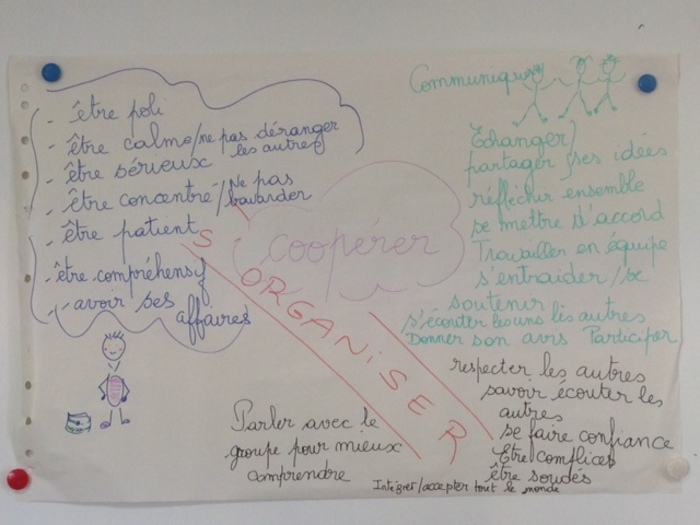 - être poli
- être calme/ne pas déranger
les autres
- être sérieux
- être concentré/Ne pas
bavarder
- être patient
- être compréhensif
- avoir ses
affaires
coopérer
S'ORGANISER
Communiquer
Echanger/
partager ses idées
réfléchir ensemble
se mettre d'accord
Travailler en équipe
s'entraider/se
soutenir
s'écouter les uns les autres
Donner son avis Participer
respecter les autres
savoir écouter les
autres
se faire confiance
Etre complices
être soudés
Parler avec le
groupe pour mieux
comprendre
Intégrer/accepter tout le monde